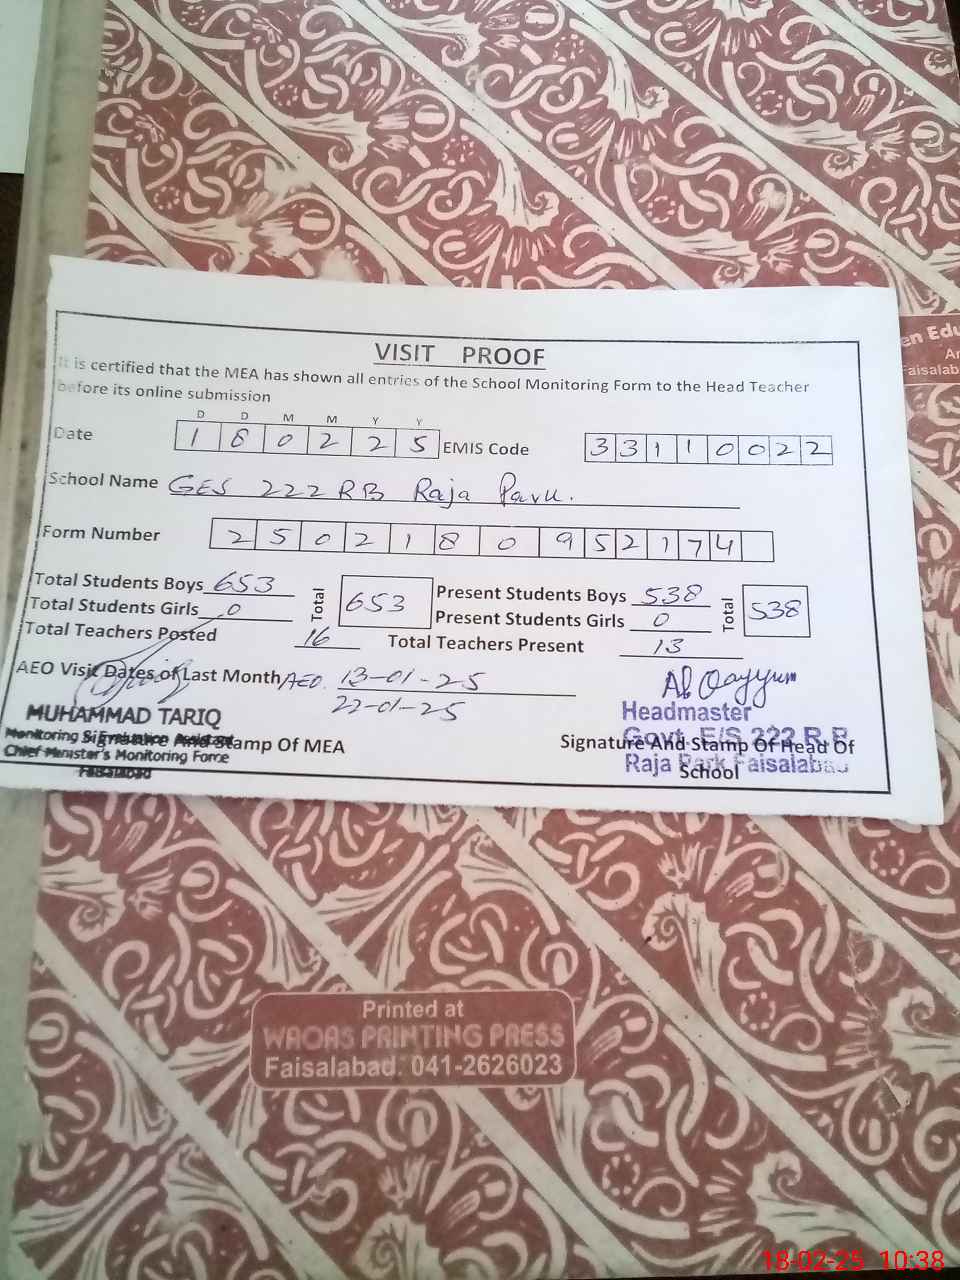 VISIT PROOF
It is certified that the MEA has shown all entries of the School Monitoring Form to the Head Teacher
before its online submission
D D M M Y Y
Date 1 8 0 2 2 5 EMIS Code 3 3 1 1 0 0 2 2
School Name GES 222 RB Raja Park.
Form Number 2 5 0 2 1 8 0 9 5 2 1 7 4
Total Students Boys 653 Total 653 Present Students Boys 538 Total 538
Total Students Girls 0 Present Students Girls 0
Total Teachers Posted 16 Total Teachers Present 13
AEO Visit Dates of Last Month AEO. 13-01-25
22-01-25
MUHAMMAD TARIQ
Monitoring & Evaluation Assistant
Signature And Stamp Of MEA
Chief Minister's Monitoring Force
Faisalabad
Ab Qayyum
Headmaster
Govt. E/S 222 R.B.
Signature And Stamp Of Head Of
Raja Park Faisalabad
School
en Edu
Ar
Faisalab
Printed at
WAQAS PRINTING PRESS
Faisalabad: 041-2626023
18-02-25 10:38